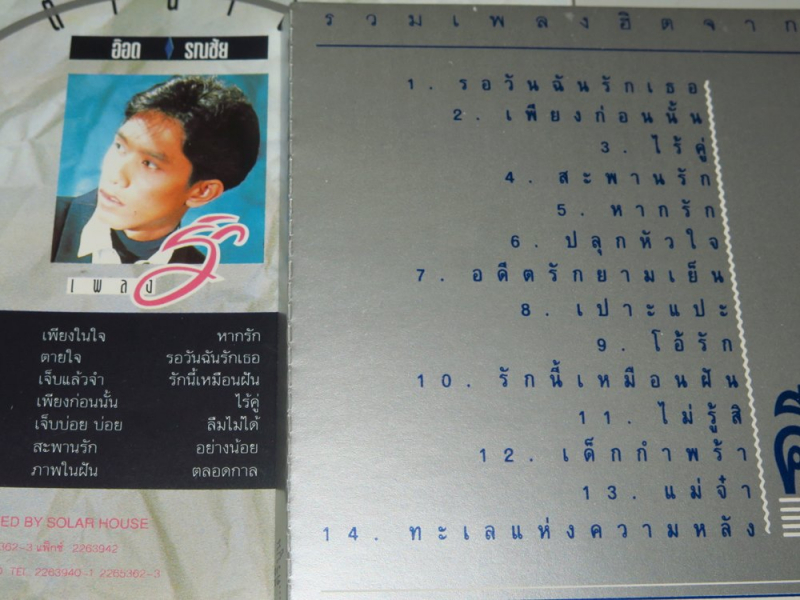 อ๊อด รณชัย
เพลง รัก
เพียงในใจ หากรัก
ตายใจ รอวันฉันรักเธอ
เจ็บแล้วจำ รักนี้เหมือนฝัน
เพียงก่อนนั้น ไร้คู่
เจ็บบ่อย บ่อย ลืมไม่ได้
สะพานรัก อย่างน้อย
ภาพในฝัน ตลอดกาล
ED BY SOLAR HOUSE
362-3 แฟ็กซ์ 2263942
TEL. 2263940-1 2265362-3
รวมเพลงฮิตจาก
1. รอวันฉันรักเธอ
2. เพียงก่อนนั้น
3. ไร้คู่
4. สะพานรัก
5. หากรัก
6. ปลุกหัวใจ
7. อดีตรักยามเย็น
8. เปาะแปะ
9. โอ้รัก
10. รักนี้เหมือนฝัน
11. ไม่รู้สิ
12. เด็กกำพร้า
13. แม่จ๋า
14. ทะเลแห่งความหลัง